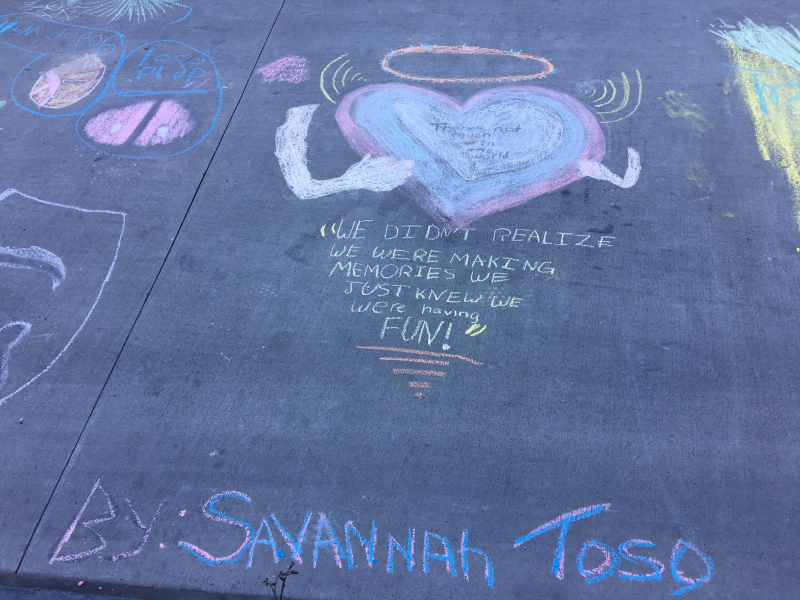 There's not
much
in
The
World
"WE DIDN'T REALIZE
WE WERE MAKING
MEMORIES WE
JUST KNEW WE
were having
FUN!"
By: SAVANNAh Toso